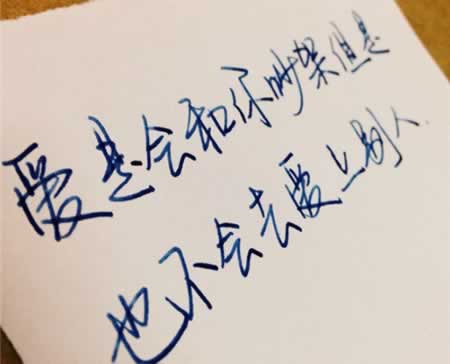 爱是会和你吵架但是
也不会去爱上别人.